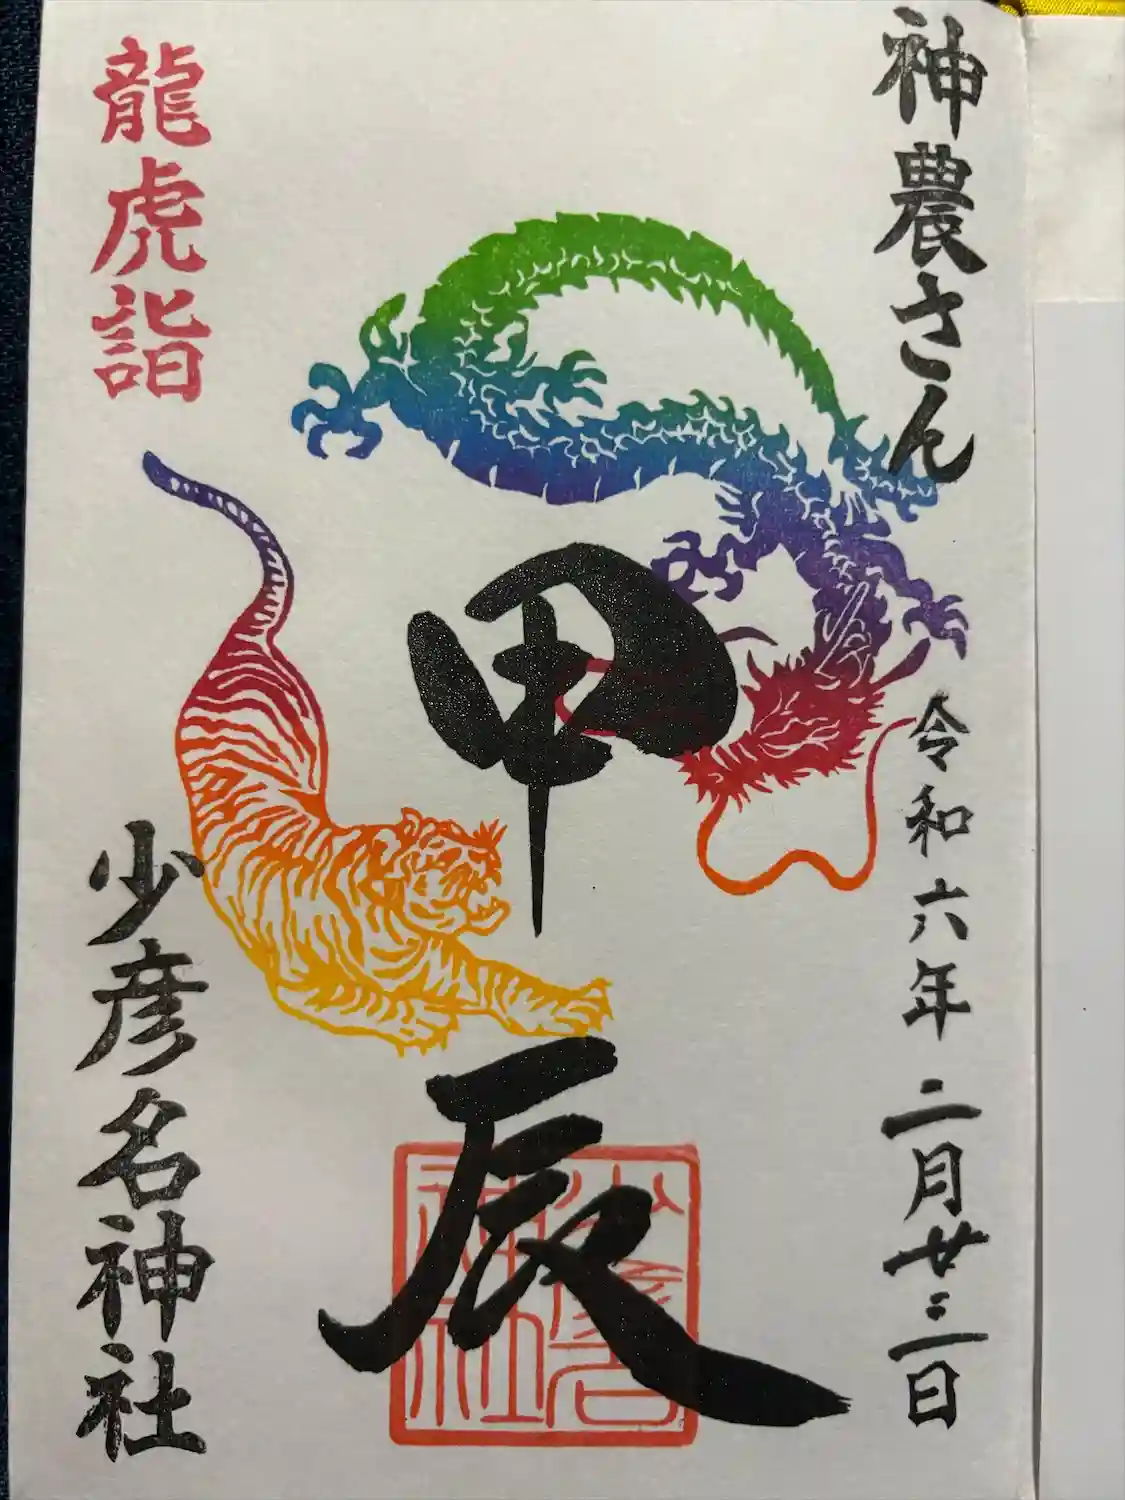 神農さん
令和六年二月廿三日
甲辰
龍虎詣
少彦名神社
少彦名
神社